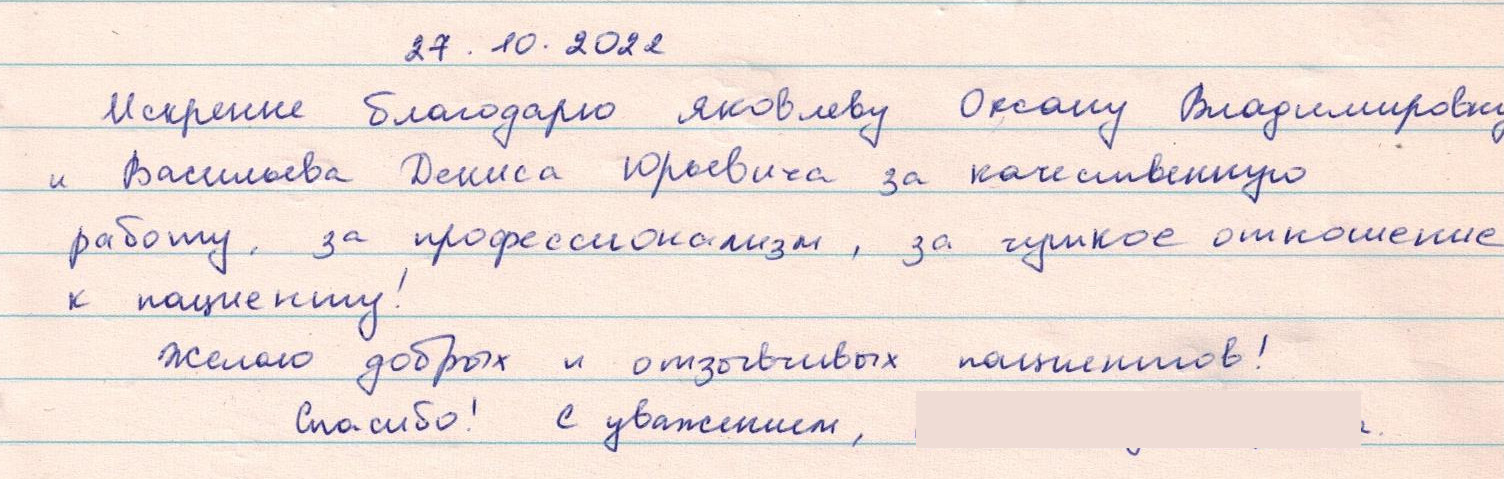 27.10.2022
Искренне благодарю Яковлеву Оксану Владимировну
и Васильева Дениса Юрьевича за качественную
работу, за профессионализм, за чуткое отношение
к пациенту!
Желаю добрых и отзывчивых пациентов!
Спасибо! С уважением,